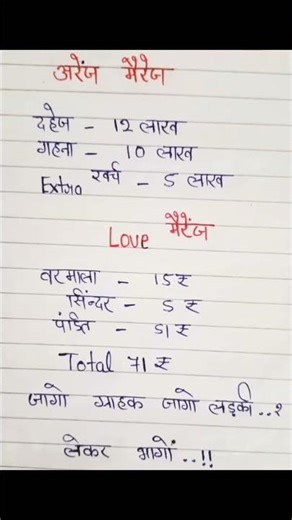 अरेंज मैरेज
दहेज - 12 लाख
गहना - 10 लाख
Extra खर्च - 5 लाख
Love मैरेंज
वरमाला - 15₹
सिंन्दर - 5 ₹
पंडित - 51₹
Total 71 ₹
जागो ग्राहक जागो लड़की..१
लेकर भागों..!!